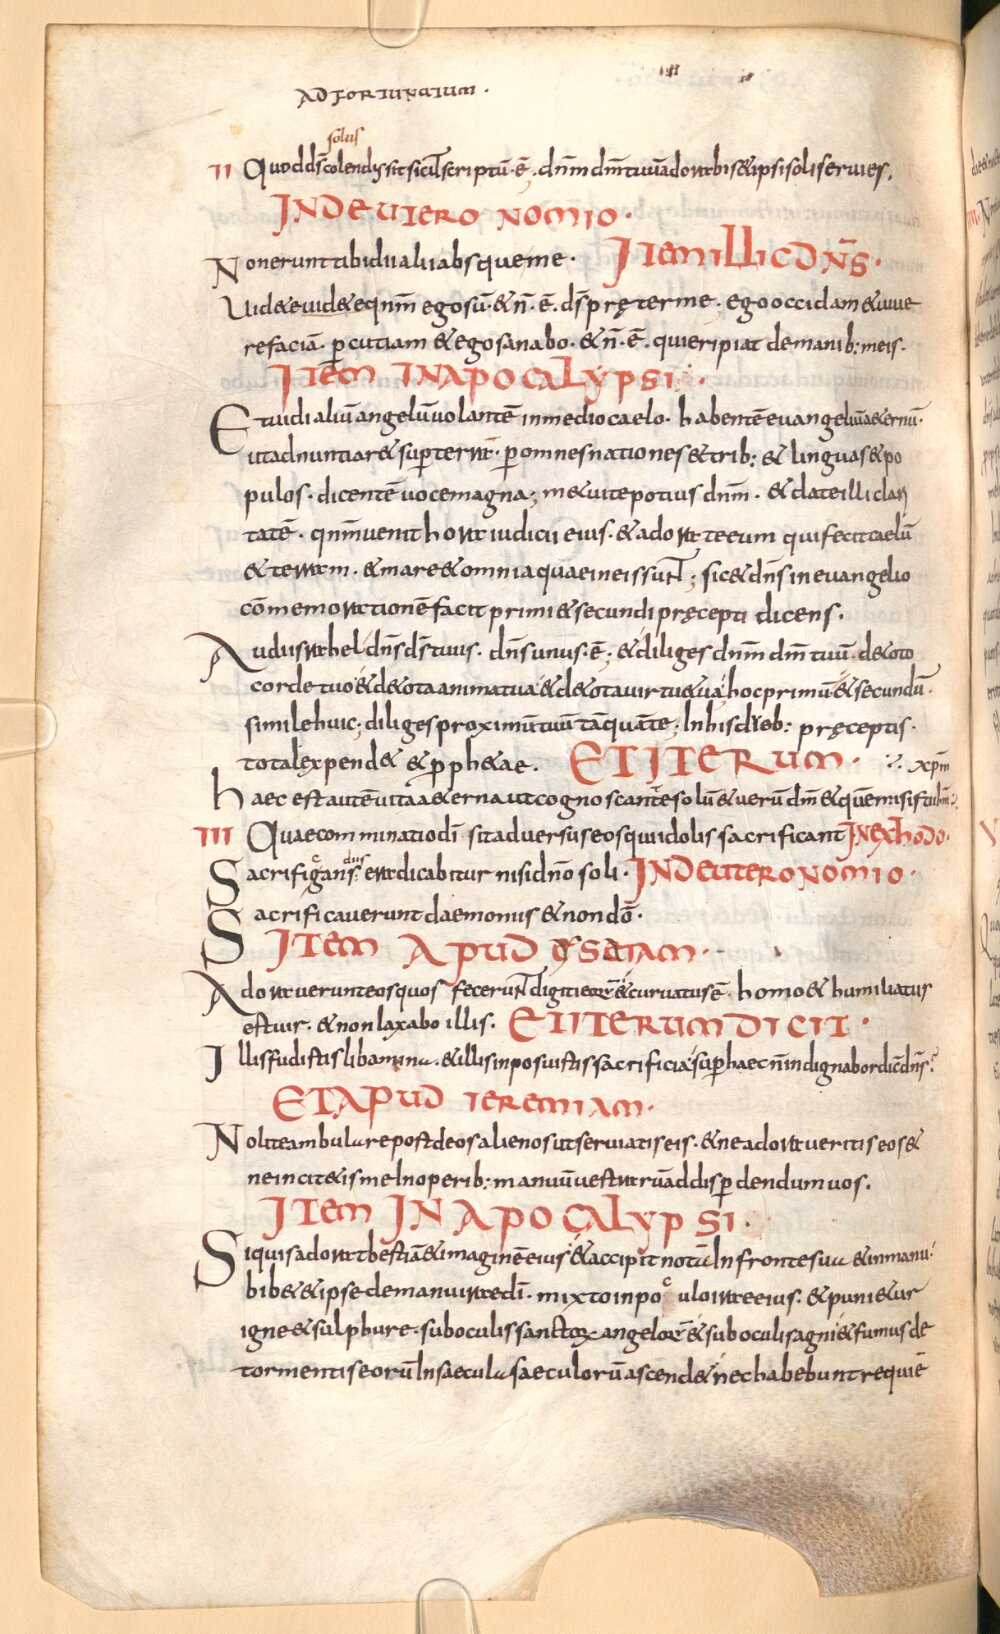 AD FORTUNATUM.
solus
II Quod ds̄ colendus sit sicut scriptū ē. dn̄m dm̄ tuū adorabis & ipsi soli servies.
IN DEUTERO NOMIO.
Non erunt tibi dii alii absque me. ITEM ILLIC DN̄S.
Uid&e uid&e qn̄m ego sū. & n̄ ē. ds̄ pręter me. ego occidam & uiue
re faciā. percutiam & ego sanabo. & n̄ ē. qui eripiat de manib: meis.
ITEM IN APOCALYPSI.
Et uidi aliū angelū uolantē in medio caelo. habentē euangeliū a&ernū.
ut adnuntiar& super terrā. per omnes nationes & trib: & linguas & po
pulos. dicentē uoce magna; m&uite potius dn̄m. & date illi clari
tatē. qn̄m uenit hora iudicii eius. & adorate eum qui fecit caelū
& terram. & mare & omnia quae in eis sunt; sic & dn̄s in euangelio
cōmemorationē facit primi & secundi pręcepti dicens.
Audi israhel dn̄s ds̄ tuus. dn̄s unus. ē; & diliges dn̄m dm̄ tuū. de toto
corde tuo & de tota anima tua & de tota uirtute tua hoc primū & secundū.
simile huic; diliges proximū tuū tāquā te; In his duob: pręceptis.
tota lex pend& & proph&ae. ET ITERUM. xpm̄
haec est autē uita a&erna ut cognoscant te solū & uerū dm̄ & quē misisti ihm̄
III Quae comminatio dī sit aduersus eos qui idolis sacrificant IN EXHODO.
Sacrificans diis eradicabitur nisi dn̄o soli. IN DEUTERONOMIO.
Sacrificauerunt daemoniis & non dō.
ITEM APUD ESEIAM.
Adorauerunt eos quos fecerunt digiti eorū & curuatus ē. homo & humiliatus
est uir. & non laxabo illis. ET ITERUM DICIT.
Illis fudistis libamina. & illis inposuistis sacrificia super haec n̄ indignabor dicit dn̄s
ET APUD IEREMIAM.
Nolite ambulare post deos alienos ut seruiatis eis. & ne adoraueritis eos &
ne incit&is me In operib: manuū uestrarū ad disperdendum uos.
ITEM IN APOCALYPSI.
Siquis adorat bestiā & imaginē eius & accipit notā In fronte sua & in manu.
bib& & ipse de manu ira dī. mixto in poculo irae eius. & puni&ur
igne & sulphure. sub oculis sanctorum angelorū & sub oculis agni & fumus de
tormentis eorū In saecula saeculorū ascend& nec habebunt requiē